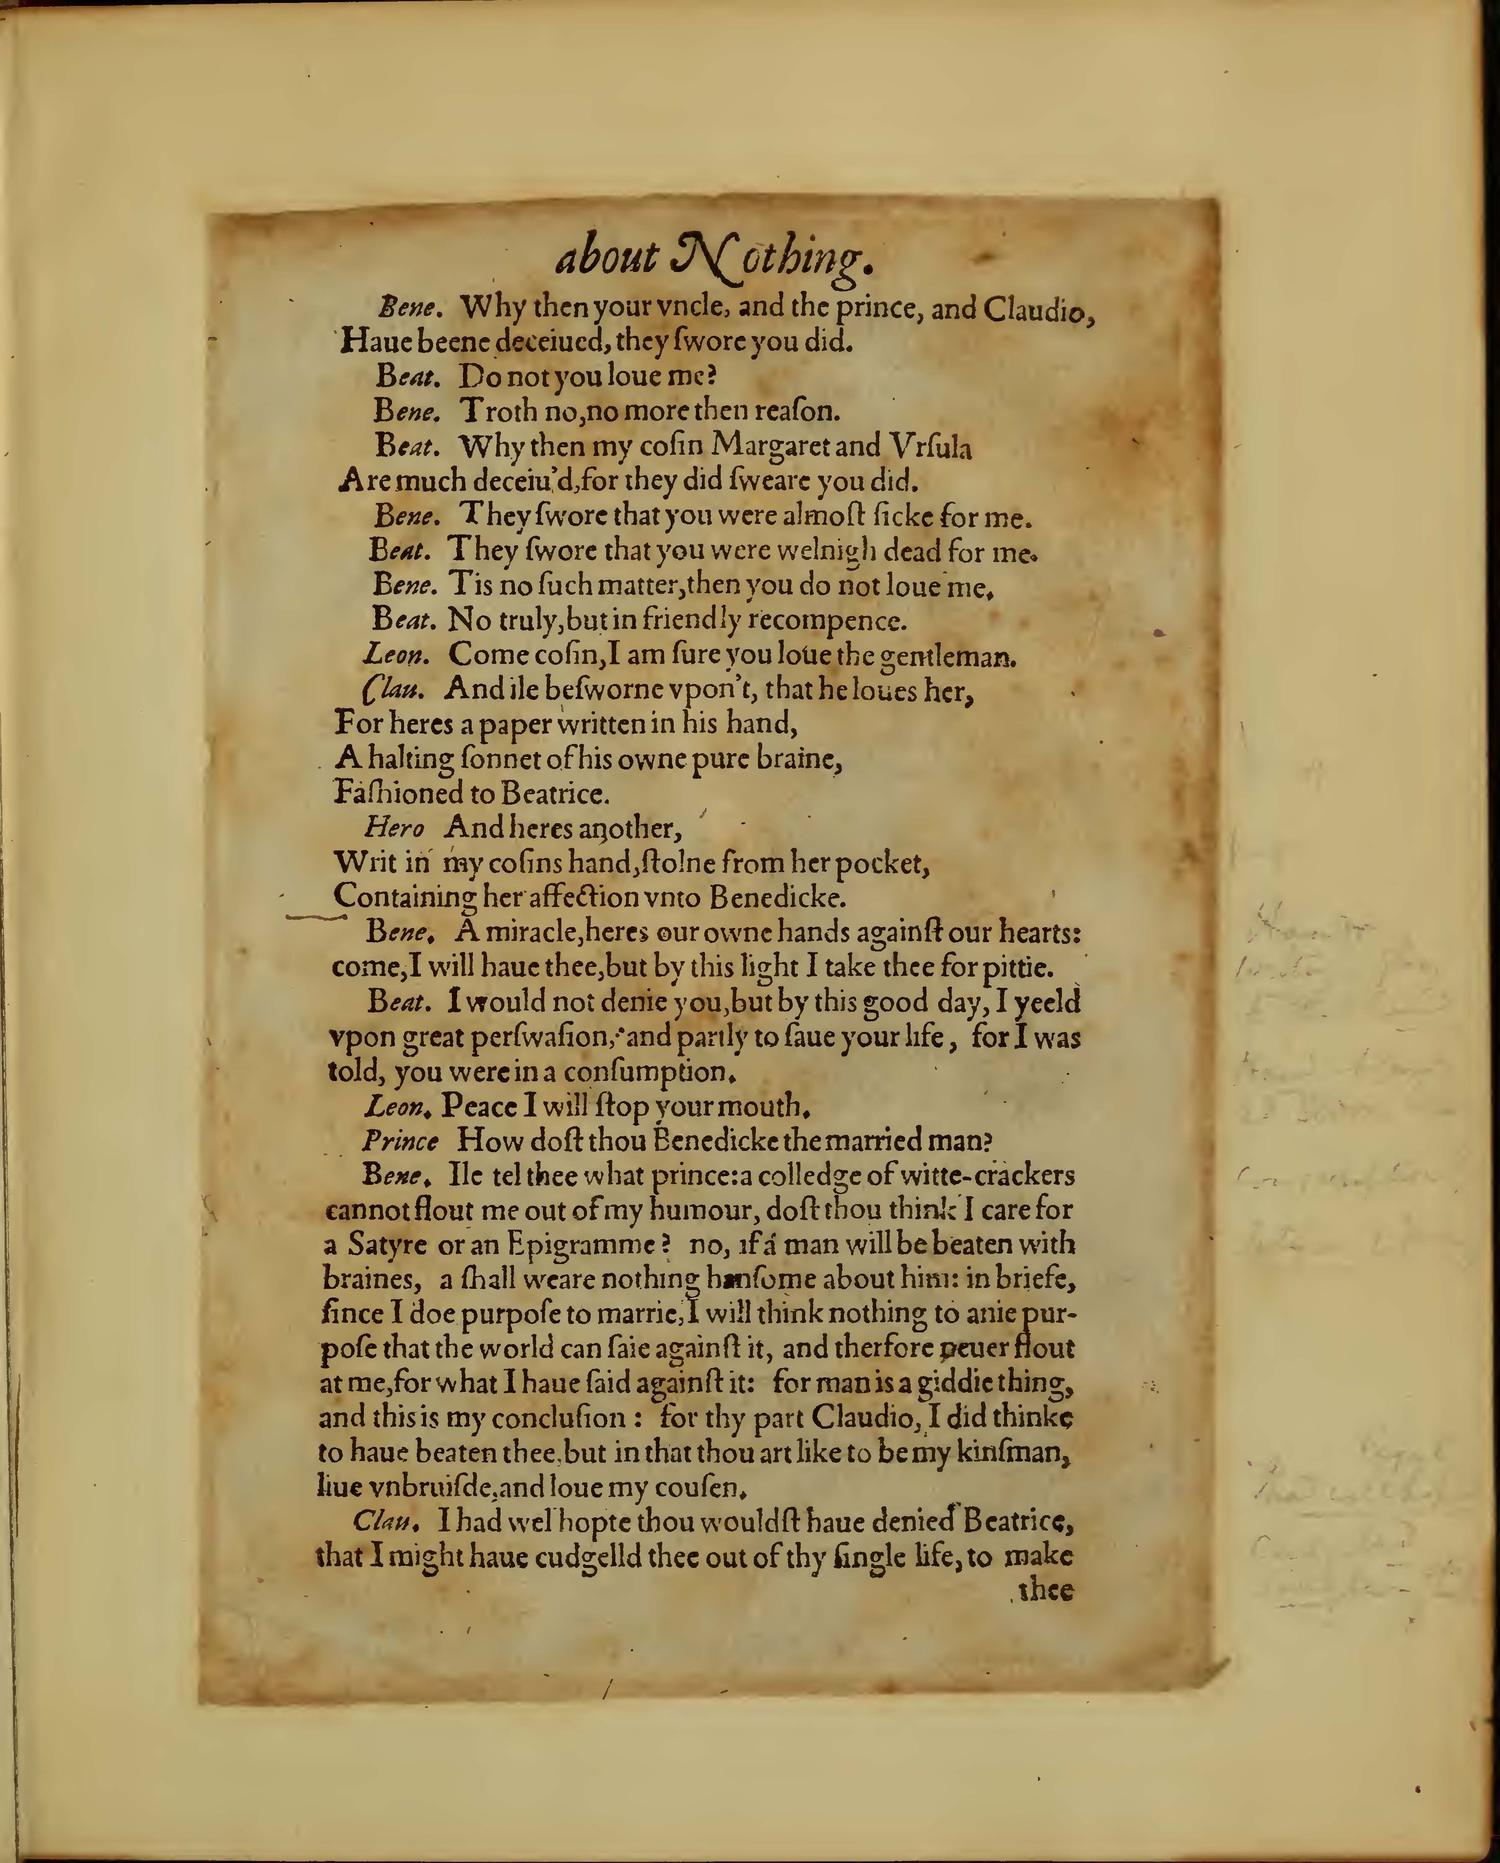 about Nothing.
Bene. Why then your vncle, and the prince, and Claudio,
Haue beene deceiued, they ſwore you did.
Beat. Do not you loue me?
Bene. Troth no, no more then reaſon.
Beat. Why then my coſin Margaret and Vrſula
Are much deceiu'd, for they did ſweare you did.
Bene. They ſwore that you were almoſt ſicke for me.
Beat. They ſwore that you were welnigh dead for me.
Bene. Tis no ſuch matter, then you do not loue me.
Beat. No truly, but in friendly recompence.
Leon. Come coſin, I am ſure you loue the gentleman.
Clau. And ile beſworne vpon't, that he loues her,
For heres a paper written in his hand,
A halting ſonnet of his owne pure braine,
Faſhioned to Beatrice.
Hero And heres another,
Writ in my coſins hand, ſtolne from her pocket,
Containing her affection vnto Benedicke.
Bene. A miracle, heres our owne hands againſt our hearts:
come, I will haue thee, but by this light I take thee for pittie.
Beat. I would not denie you, but by this good day, I yeeld
vpon great perſwaſion, and partly to ſaue your life, for I was
told, you were in a conſumption.
Leon. Peace I will ſtop your mouth.
Prince How doſt thou Benedicke the married man?
Bene. Ile tel thee what prince: a colledge of witte-crackers
cannot flout me out of my humour, doſt thou think I care for
a Satyre or an Epigramme? no, if a man will be beaten with
braines, a ſhall weare nothing hanſome about him: in briefe,
ſince I doe purpoſe to marrie, I will think nothing to anie pur-
poſe that the world can ſaie againſt it, and therfore neuer flout
at me, for what I haue ſaid againſt it: for man is a giddie thing,
and this is my concluſion: for thy part Claudio, I did thinke
to haue beaten thee, but in that thou art like to be my kinſman,
liue vnbruiſde, and loue my couſen.
Clau. I had wel hopte thou wouldſt haue denied Beatrice,
that I might haue cudgelld thee out of thy ſingle life, to make
thee